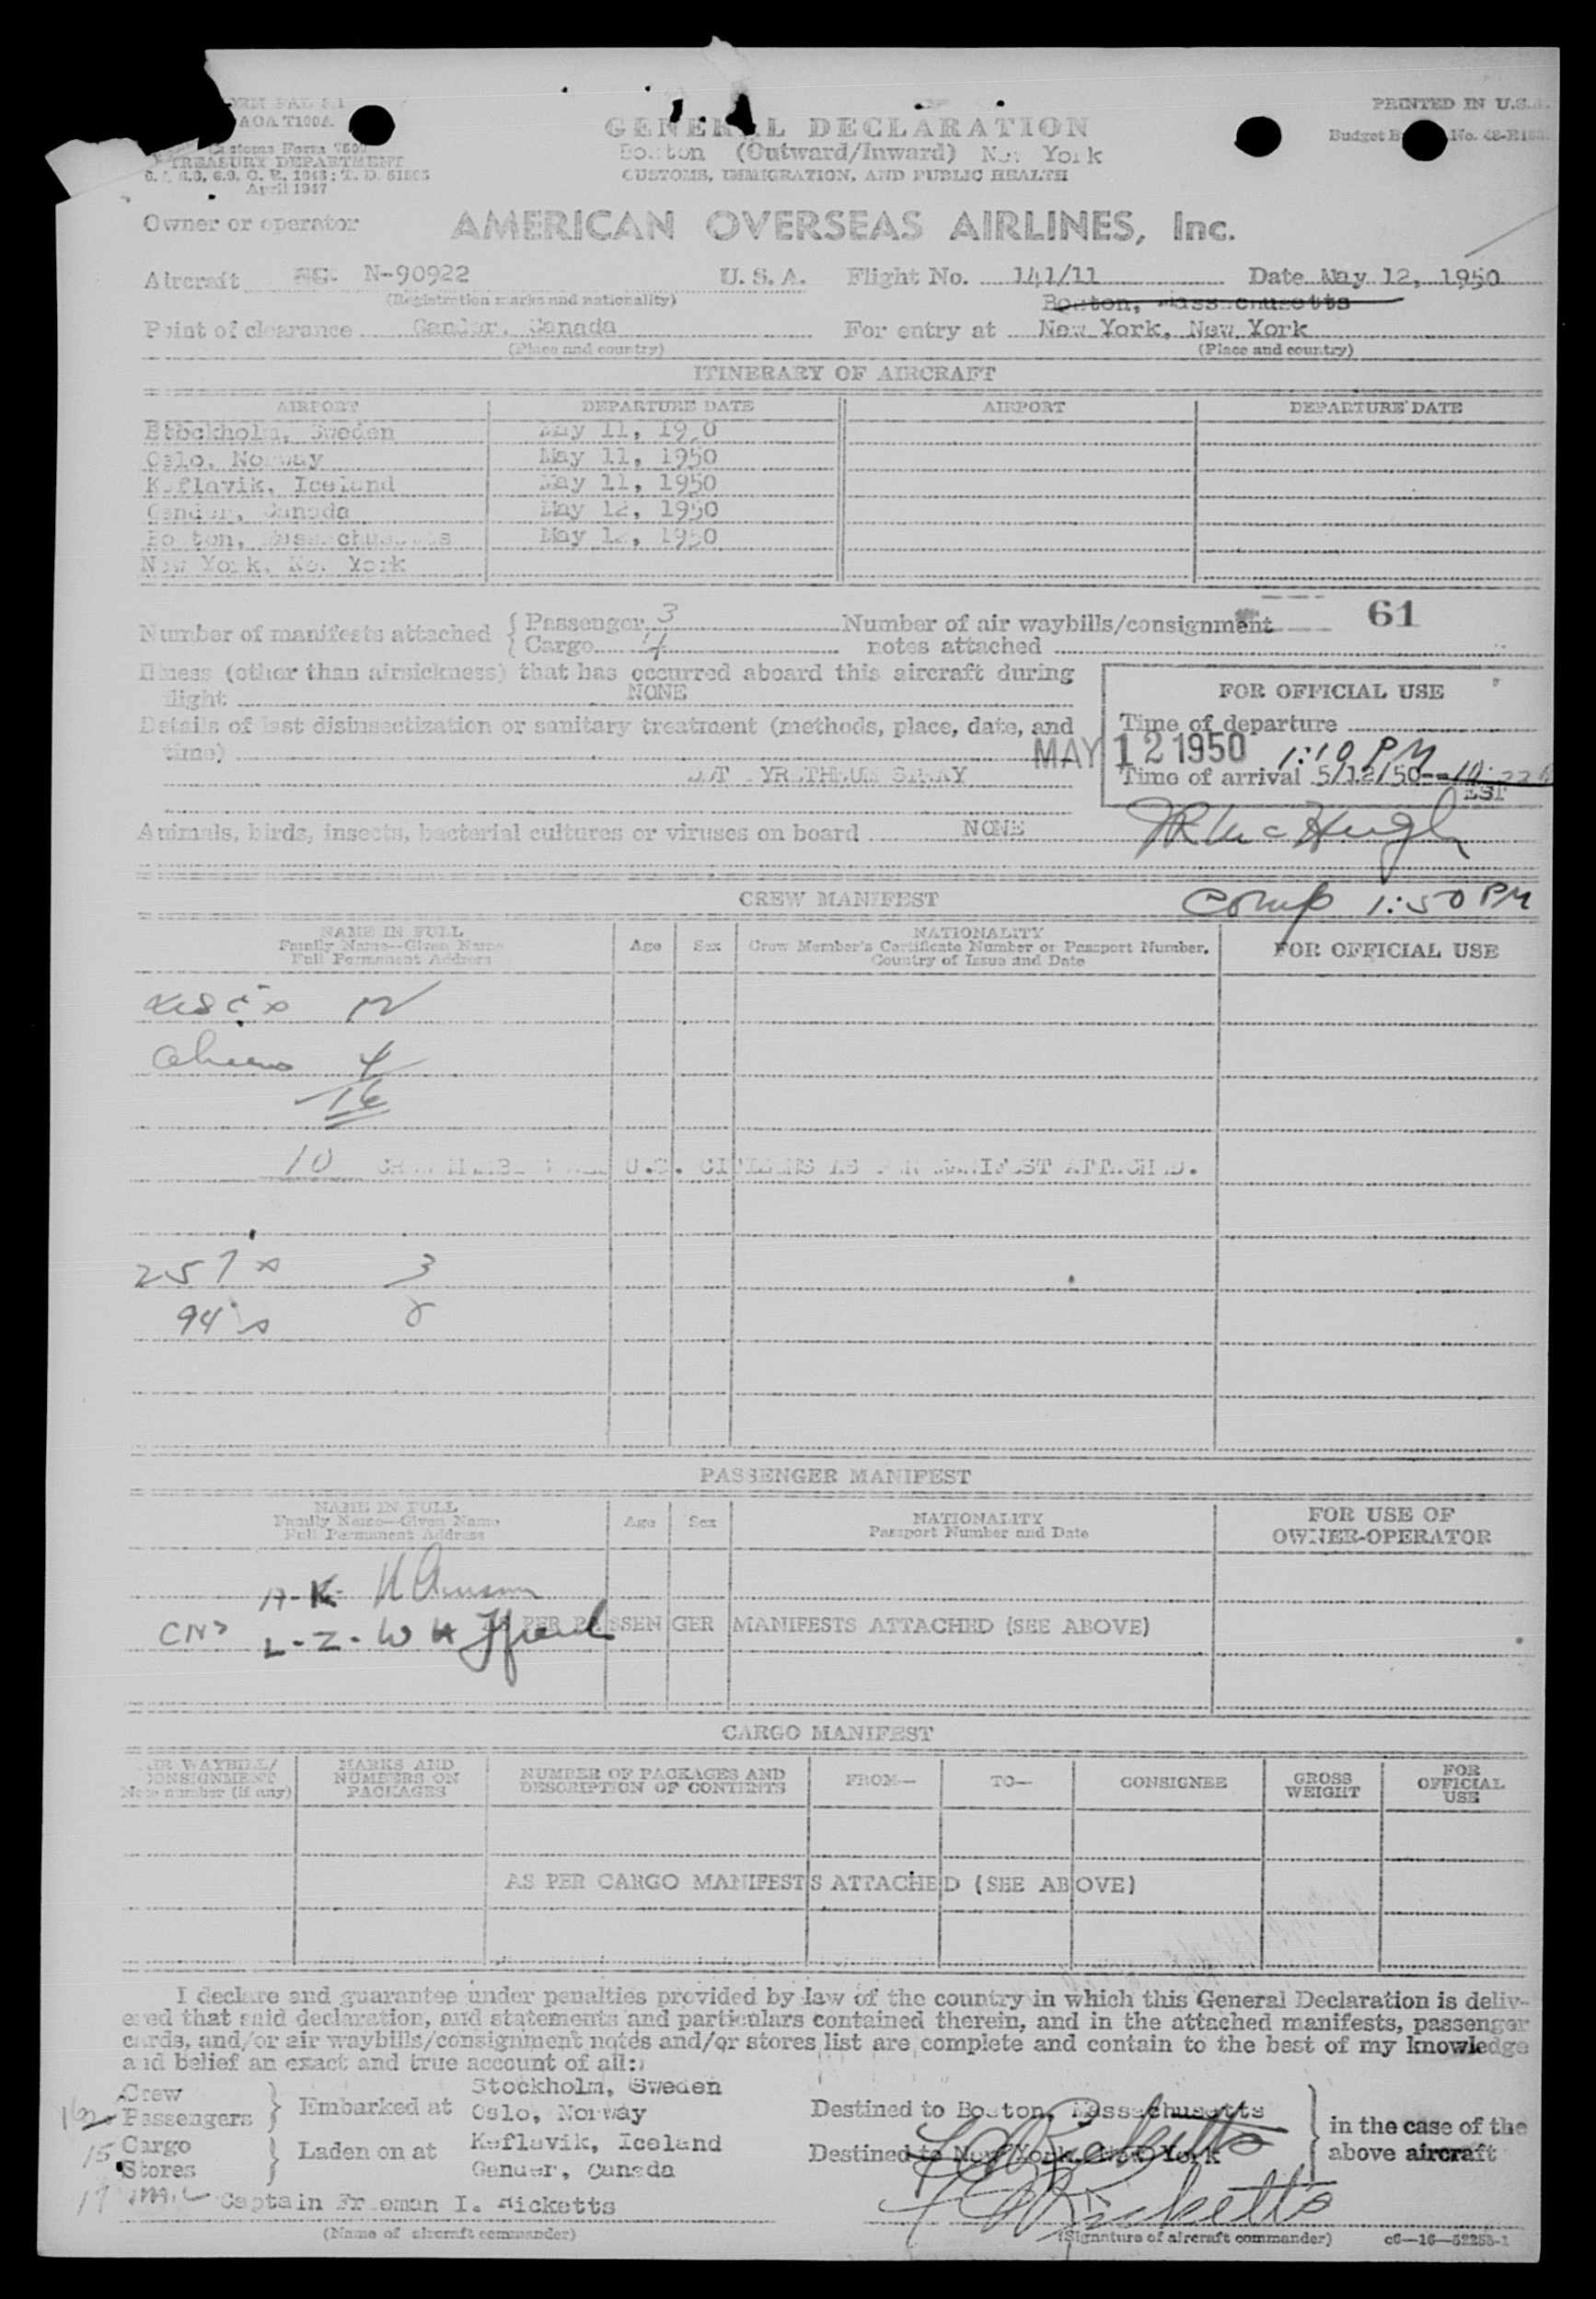 AOA T100A
PRINTED IN U.S.
Customs Form 7507
TREASURY DEPARTMENT
April 1947
GENERAL DECLARATION
Boston (Outward/Inward) New York
CUSTOMS, IMMIGRATION, AND PUBLIC HEALTH
Owner or operator AMERICAN OVERSEAS AIRLINES, Inc.
Aircraft N-90922 U. S. A. Flight No. 141/11 Date May 12, 1950
(Registration marks and nationality)
Boston, Massachusetts
Point of clearance Gander, Canada For entry at New York, New York
(Place and country) (Place and country)
ITINERARY OF AIRCRAFT
AIRPORT DEPARTURE DATE AIRPORT DEPARTURE DATE
Stockholm, Sweden May 11, 1950
Oslo, Norway May 11, 1950
Keflavik, Iceland May 11, 1950
Gander, Canada May 12, 1950
Boston, Massachusetts May 12, 1950
New York, New York
Number of manifests attached { Passenger 3 Number of air waybills/consignment 61
Cargo 4 notes attached
Illness (other than airsickness) that has occurred aboard this aircraft during
flight NONE
FOR OFFICIAL USE
Details of last disinsectization or sanitary treatment (methods, place, date, and
time)
Time of departure
MAY 12 1950 1:10 PM
DDT PYRETHEUM SPRAY
Time of arrival 5/12/50
EST
Animals, birds, insects, bacterial cultures or viruses on board NONE
JR McHugh
CREW MANIFEST
Comp 1:50 PM
NAME IN FULL
Family Name—Given Name
Full Permanent Address
Age Sex
NATIONALITY
Crew Member's Certificate Number or Passport Number,
Country of Issue and Date
FOR OFFICIAL USE
USC's 12
Aliens 4
16
10 CREW MEMBERS U.S. CITIZENS AS PER MANIFEST ATTACHED.
257's 3
94's
PASSENGER MANIFEST
NAME IN FULL
Family Name—Given Name
Full Permanent Address
Age Sex
NATIONALITY
Passport Number and Date
FOR USE OF
OWNER-OPERATOR
AS PER PASSENGER MANIFESTS ATTACHED (SEE ABOVE)
CARGO MANIFEST
AIR WAYBILL/
CONSIGNMENT
Note number (if any)
MARKS AND
NUMBERS ON
PACKAGES
NUMBER OF PACKAGES AND
DESCRIPTION OF CONTENTS
FROM— TO— CONSIGNEE
GROSS
WEIGHT
FOR
OFFICIAL
USE
AS PER CARGO MANIFESTS ATTACHED (SEE ABOVE)
I declare and guarantee under penalties provided by law of the country in which this General Declaration is deliv-
ered that said declaration, and statements and particulars contained therein, and in the attached manifests, passenger
cards, and/or air waybills/consignment notes and/or stores list are complete and contain to the best of my knowledge
and belief an exact and true account of all:
Crew
Passengers } Embarked at
Stockholm, Sweden
Oslo, Norway
Destined to Boston, Massachusetts
15 Cargo
Stores } Laden on at
Keflavik, Iceland
Gander, Canada
Destined to New York, New York
} in the case of the
above aircraft
17 Captain Freeman I. Ricketts
F I Ricketts
F I Ricketts
(Name of aircraft commander) (Signature of aircraft commander)